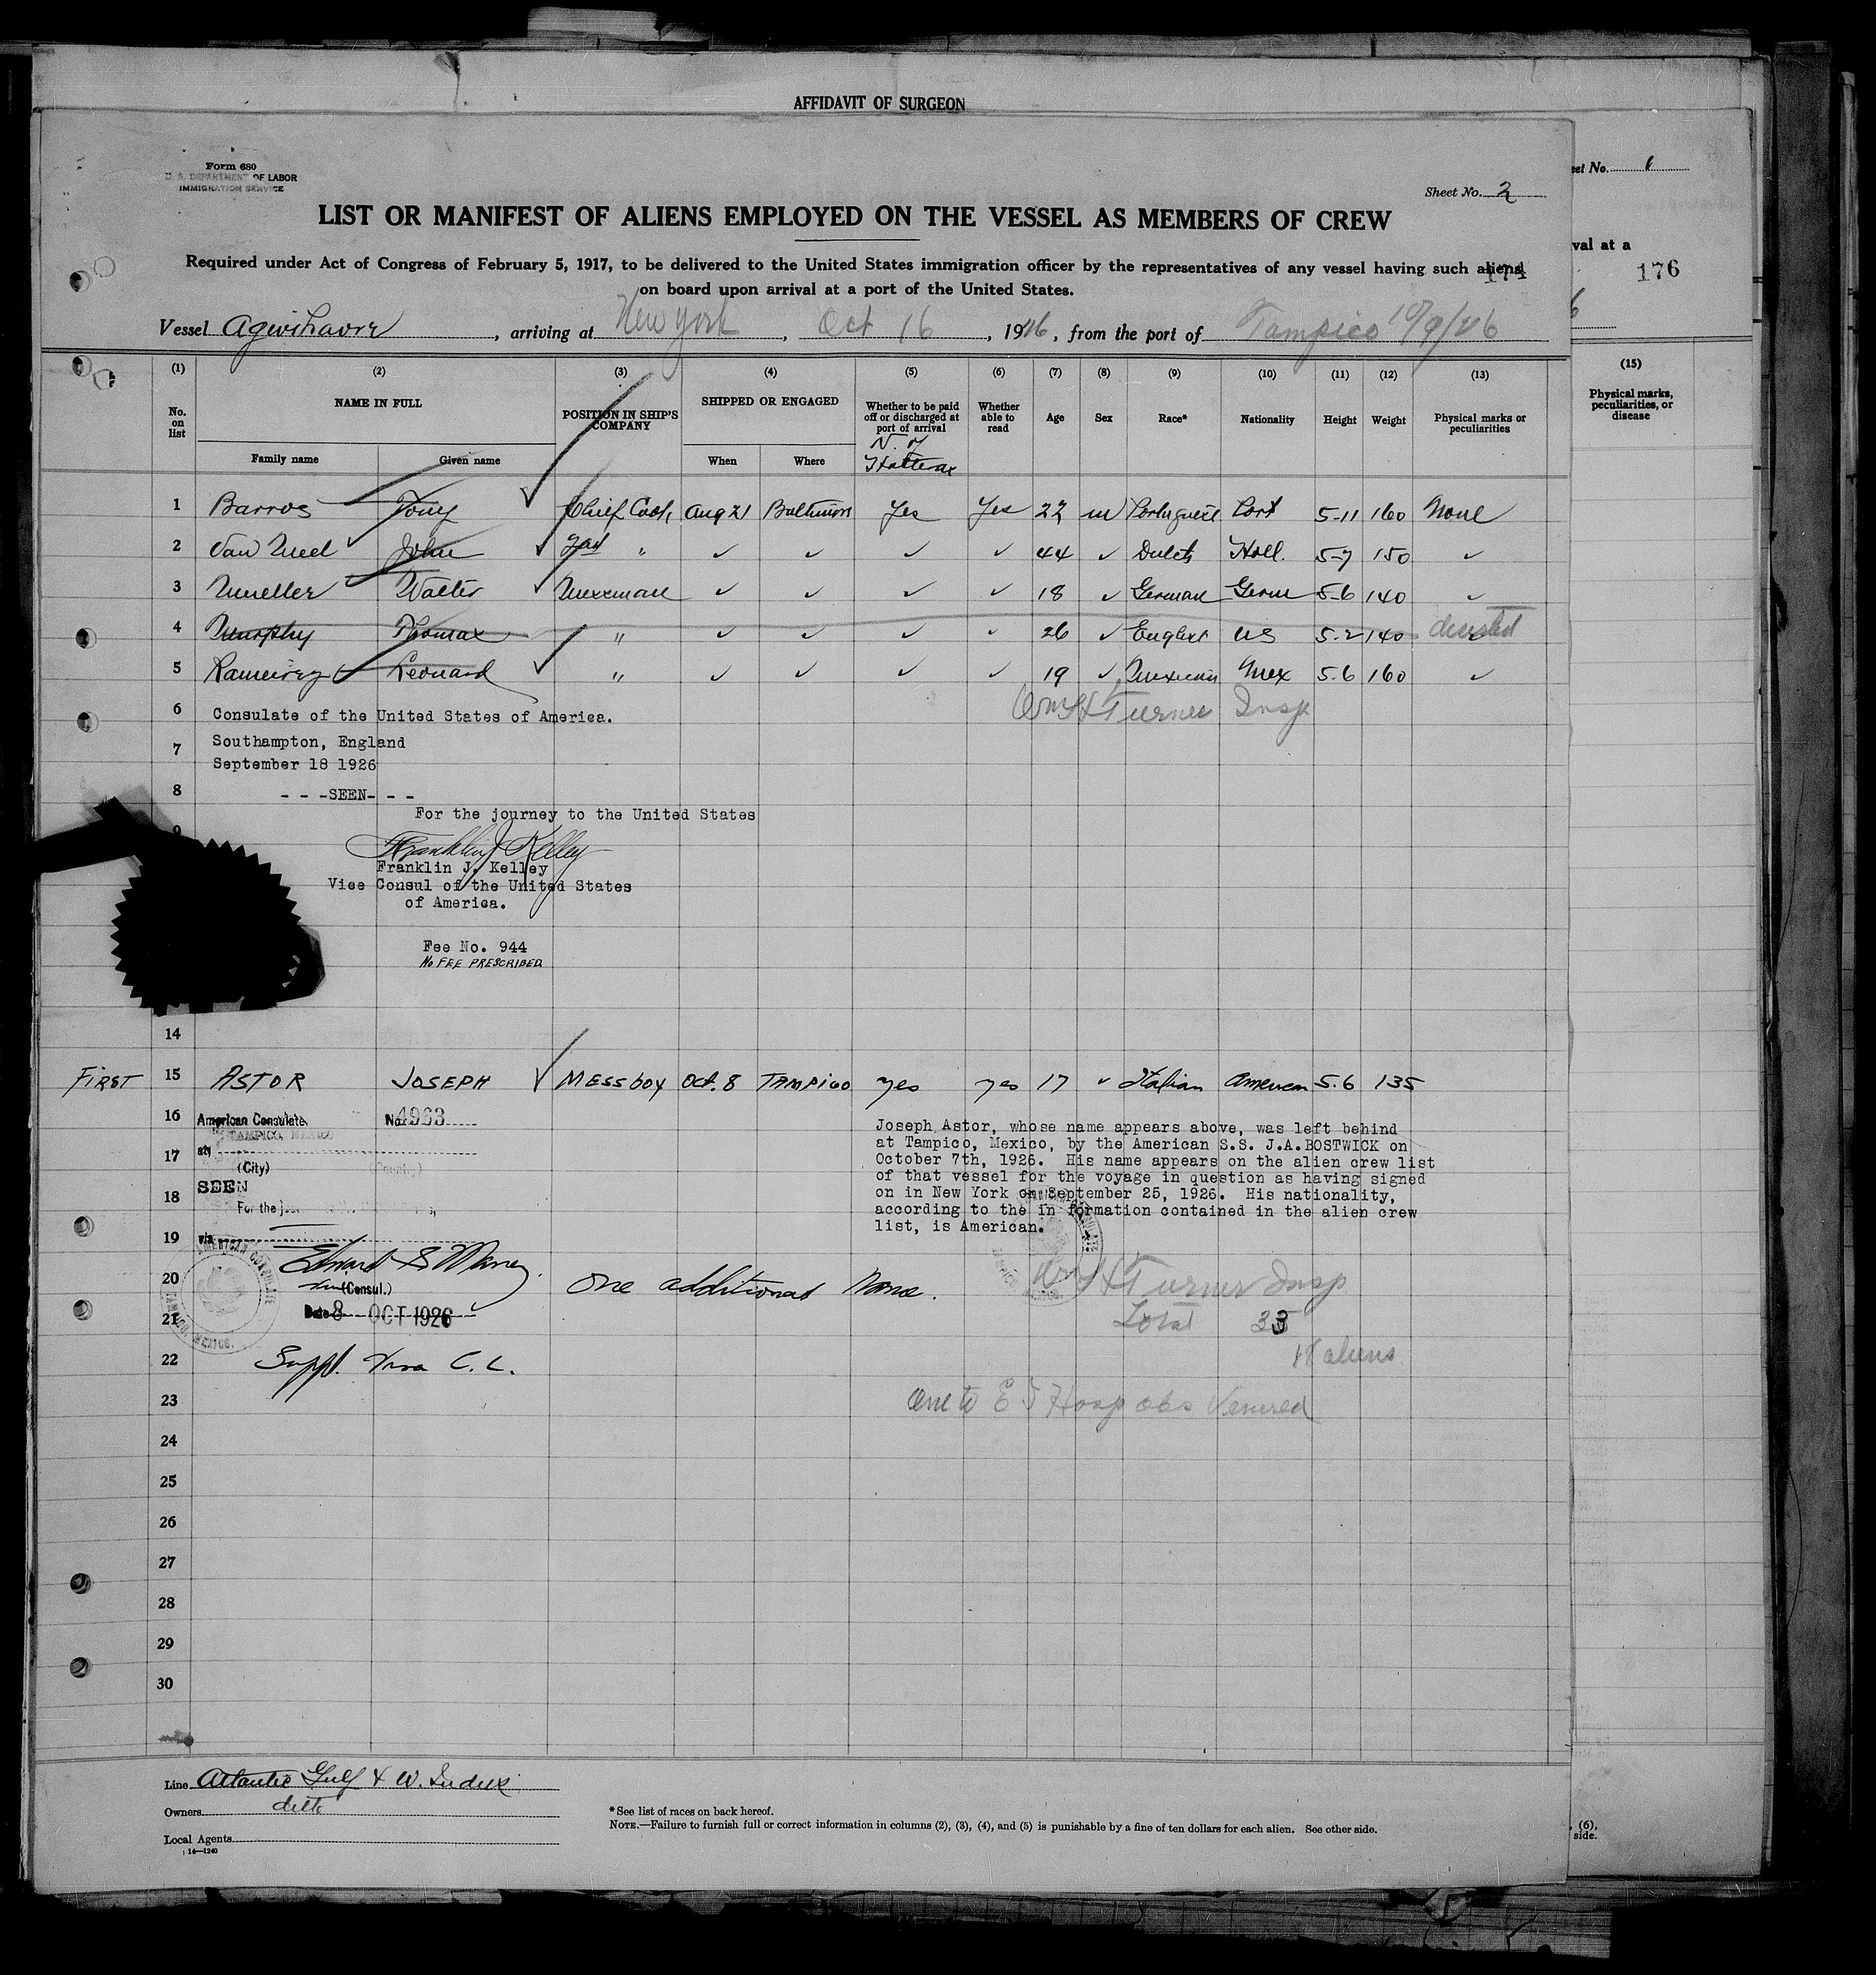 AFFIDAVIT OF SURGEON
Form 680
U. S. DEPARTMENT OF LABOR
IMMIGRATION SERVICE
Sheet No. 2
LIST OR MANIFEST OF ALIENS EMPLOYED ON THE VESSEL AS MEMBERS OF CREW
Required under Act of Congress of February 5, 1917, to be delivered to the United States immigration officer by the representatives of any vessel having such aliens
174
on board upon arrival at a port of the United States.
Vessel Agwihavre, arriving at New York, Oct 16, 1926, from the port of Tampico 10/9/26
(1) (2) (3) (4) (5) (6) (7) (8) (9) (10) (11) (12) (13)
No. on list
NAME IN FULL
Family name Given name
POSITION IN SHIP'S COMPANY
SHIPPED OR ENGAGED
When Where
Whether to be paid off or discharged at port of arrival
N. Y.
Whether able to read
Age Sex Race* Nationality Height Weight
Physical marks or peculiarities
1 Barros Tony Chief Cook Aug 21 Baltimore Yes Yes 22 m Portuguese Port 5-11 160 None
2 Van John 2nd " ✓ ✓ ✓ ✓ 44 ✓ Dutch Holl. 5-7 150 ✓
3 Mueller Walter Messman ✓ ✓ ✓ ✓ 18 ✓ German Germ 5-6 140 ✓
4 Murphy Thomas " ✓ ✓ ✓ ✓ 26 ✓ English US 5-2 140 deserted
5 Ramirez Leonard " ✓ ✓ ✓ ✓ 19 ✓ Mexican Mex 5.6 160 ✓
Wm H Turner Insp
6 Consulate of the United States of America.
7 Southampton, England
September 18 1926
8 - - -SEEN- - -
For the journey to the United States
9
Franklin J Kelley
Franklin J. Kelley
Vice Consul of the United States
of America.
Fee No. 944
NO FEE PRESCRIBED
14
FIRST 15 ASTOR JOSEPH ✓ MESSBOY Oct. 8 TAMPICO yes yes 17 ✓ Italian American 5.6 135
16 American Consulate, No. 4963
TAMPICO, MEXICO
at
17 (City) (Country)
SEEN
18 For the
19 via
20 (Consul.)
21 Date 8 OCT 1926
AMERICAN CONSULATE
TAMPICO, MEXICO.
Joseph Astor, whose name appears above, was left behind
at Tampico, Mexico, by the American S.S. J.A.BOSTWICK on
October 7th, 1926. His name appears on the alien crew list
of that vessel for the voyage in question as having signed
on in New York on September 25, 1926. His nationality,
according to the in formation contained in the alien crew
list, is American.
One additional name.
Wm H Turner Insp
Total 33
aliens
22 Suppl. Visa C. L.
23 One to E I Hosp obs Venereal
24
25
26
27
28
29
30
Line Atlantic Gulf & W. Indies
Owners ditto
Local Agents
14—1240
*See list of races on back hereof.
NOTE.—Failure to furnish full or correct information in columns (2), (3), (4), and (5) is punishable by a fine of ten dollars for each alien. See other side.
eet No. 1
val at a
176
6
(15)
Physical marks, peculiarities, or disease
, (6),
side.